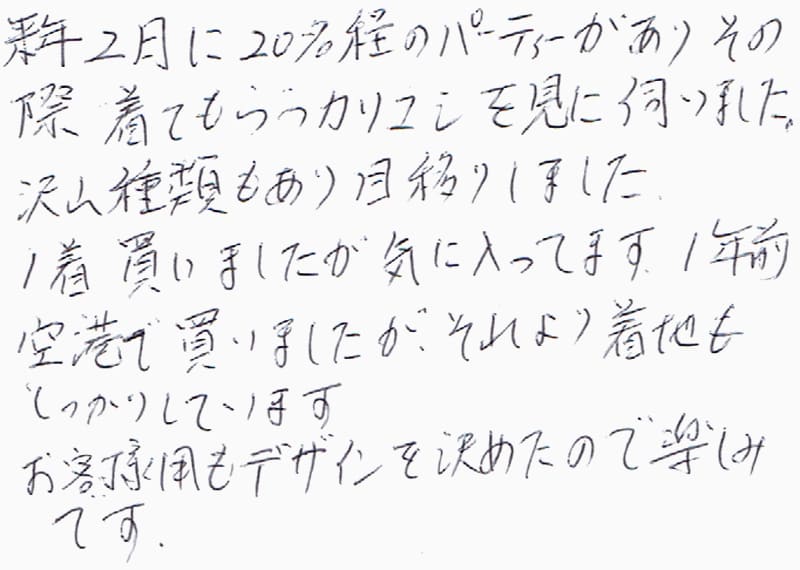 来年2月に20%程のパーティーがありその
際着てもらうカリユシを見に伺いました。
沢山種類もあり目移りしました。
1着買いましたが気に入ってます。1年前
空港で買いましたが、それより着地も
しっかりしています
お客様用もデザインを決めたので楽しみ
です.